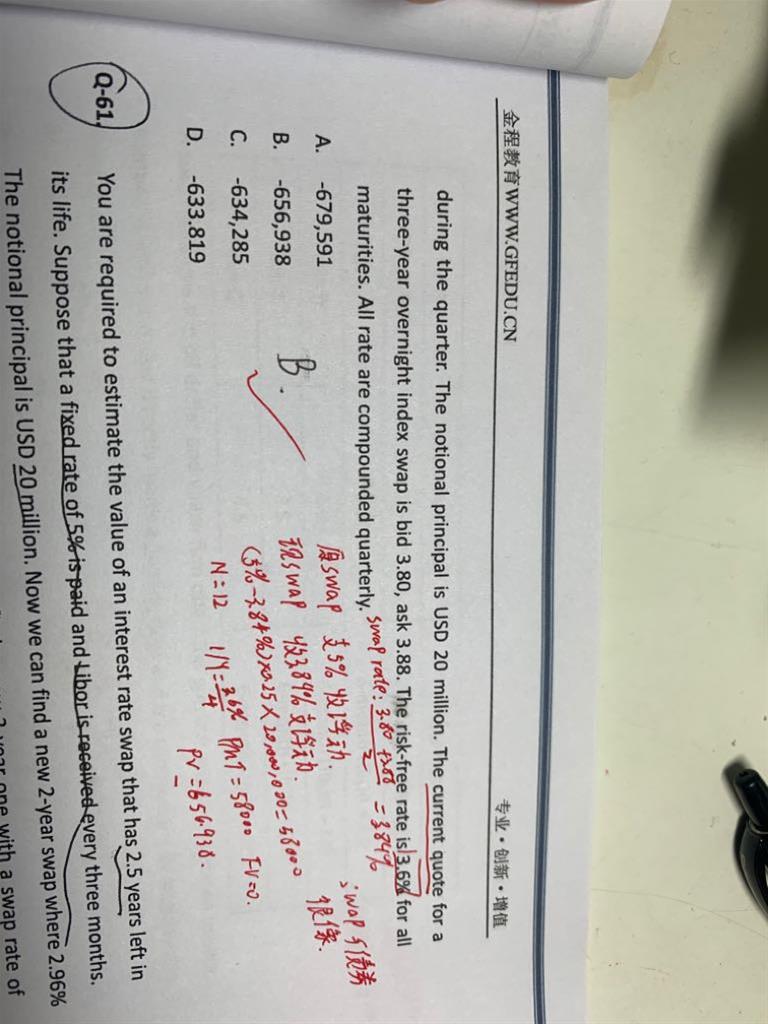 金程教育 WWW.GFEDU.CN 专业·创新·增值
during the quarter. The notional principal is USD 20 million. The current quote for a
three-year overnight index swap is bid 3.80, ask 3.88. The risk-free rate is 3.6% for all
maturities. All rate are compounded quarterly.
swap rate: (3.80+3.88)/2 = 3.84%
A. -679,591
B. -656,938
C. -634,285
D. -633.819
B.
原swap 支5% 收浮动.
现swap 收3.84% 支浮动.
(5%-3.84%)×0.25×20,000,000=58000
N=12 I/Y=3.6%/4 PMT=58000 FV=0.
PV=656.938.
swap 与债券
很像.
Q-61. You are required to estimate the value of an interest rate swap that has 2.5 years left in
its life. Suppose that a fixed rate of 5% is paid and Libor is received every three months.
The notional principal is USD 20 million. Now we can find a new 2-year swap where 2.96%
one with a swap rate of